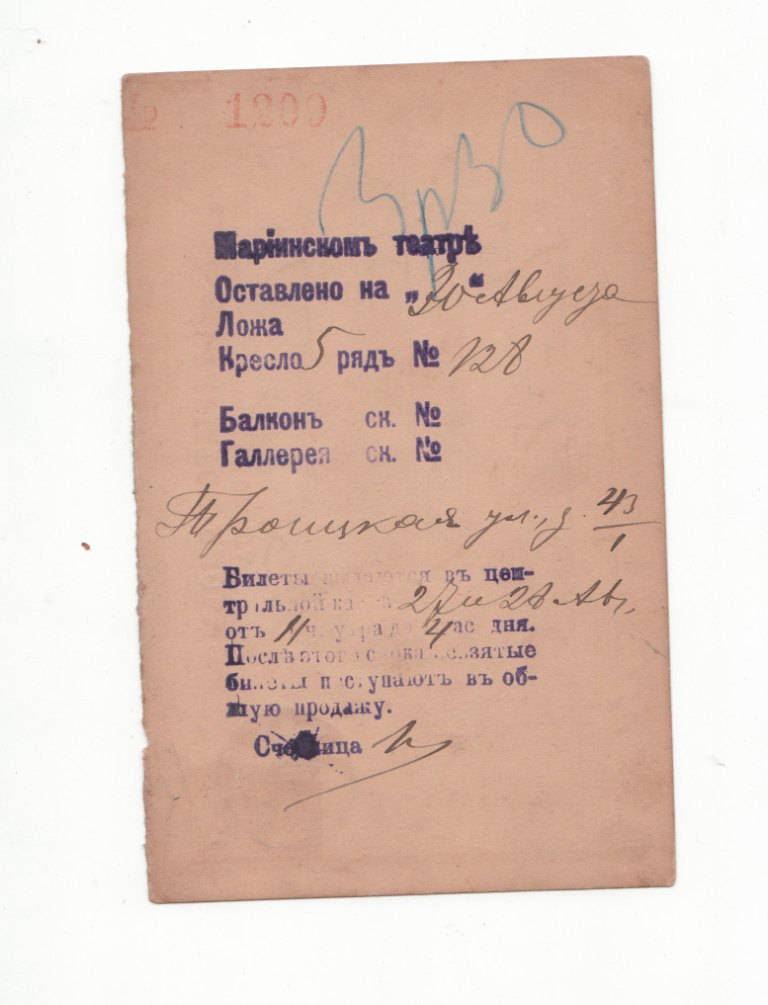 1200
Маріинскомъ театрѣ
Оставлено на „30“ Августа
Ложа
Кресло 5 рядъ № 128
Балконъ ск. №
Галлерея ск. №
Троицкая ул., д. 43/1
Билеты выдаются въ цен-
тральной 27 и 28 Ав.
отъ 11 ч. утра до 4 час дня.
Послѣ этого срока невзятые
билеты поступаютъ въ об-
щую продажу.
Счетчица